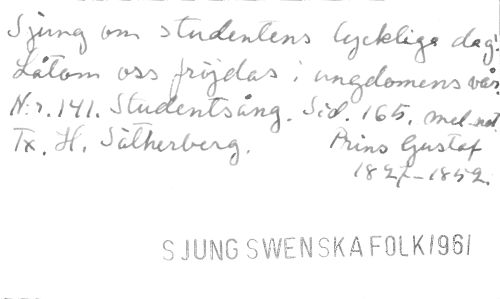 Sjung om studentens lyckliga dag!
Låtom oss fröjdas i ungdomens vår.
Nr. 141. Studentsång. Sid. 165. mel.not.
Tx. H. Sätherberg. Prins Gustaf
1827-1852.
SJUNG SWENSKA FOLK/1961